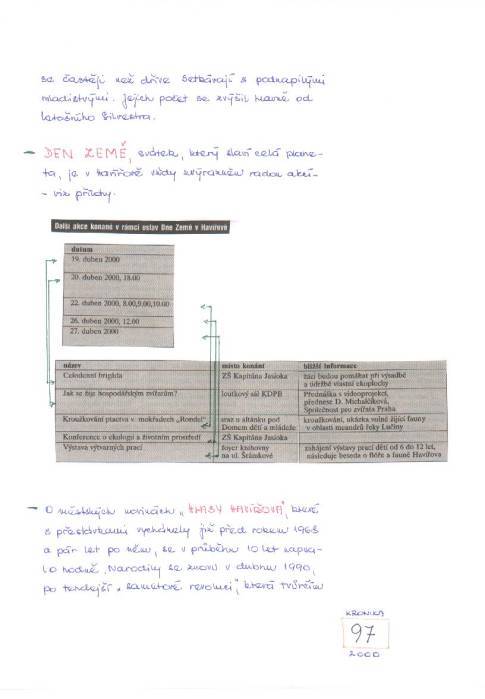 se častěji než dříve setkávají s podnapilými
mladistvými. Jejich počet se zvýšil hlavně od
letošního Silvestra.
– DEN ZEMĚ, svátek, který slaví celá plane-
ta, je v Havířově vždy zvýrazněn řadou akcí –
– viz přílohy.
Další akce konané v rámci oslav Dne Země v Havířově
datum
19. duben 2000
20. duben 2000, 18.00
22. duben 2000, 8.00,9.00,10.00
26. duben 2000, 12.00
27. duben 2000
název místo konání bližší informace
Celodenní brigáda ZŠ Kapitána Jasioka žáci budou pomáhat při výsadbě
a údržbě vlastní ekoplochy
Jak se žije hospodářským zvířatům? loutkový sál KDPB Přednáška s videoprojekcí,
přednese D. Michalčíková,
Společnost pro zvířata Praha
Kroužkování ptactva v mokřadech „Rondel" sraz u altánku pod kroužkování, ukázka volně žijící fauny
Domem dětí a mládeže v oblasti meandrů řeky Lučiny
Konference o ekologii a životním prostředí ZŠ Kapitána Jasioka
Výstava výtvarných prací foyer knihovny zahájení výstavy prací dětí od 6 do 12 let,
na ul. Šrámkově následuje beseda o flóře a fauně Havířova
– O městských novinách „HLASY HAVÍŘOVA", které
s přestávkami vycházely již před rokem 1968
a pár let po něm, se v průběhu 10 let napsa-
lo hodně. Narodily se znovu v dubnu 1990,
po tehdejší „sametové revoluci", která tvůrčím
KRONIKA
97
2000